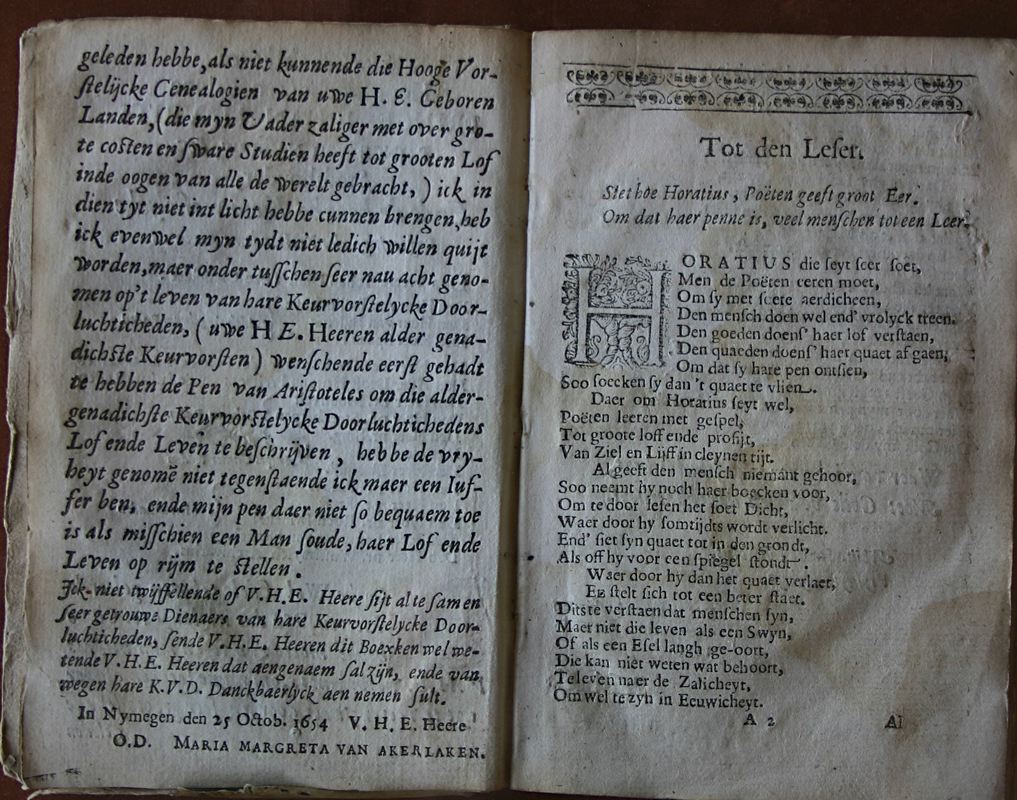 geleden hebbe, als niet kunnende die Hooge Vor-
stelijcke Genealogien van uwe H. E. Geboren
Landen, (die myn Vader zaliger met over gro-
te costen en sware Studien heeft tot grooten Lof
inde oogen van alle de werelt gebracht, ) ick in
dien tyt niet int licht hebbe cunnen brengen, heb
ick evenwel myn tydt niet ledich willen quijt
worden, maer onder tusschen seer nau acht geno-
men op't leven van hare Keurvorstelycke Door-
luchticheden, ( uwe H E. Heeren alder gena-
dichste Keurvorsten ) wenschende eerst gehadt
te hebben de Pen van Aristoteles om die alder-
genadichste Keurvorstelycke Doorluchtichedens
Lof ende Leven te beschrijven , hebbe de vry-
heyt genomē niet tegenstaende ick maer een Iuf-
fer ben, ende mijn pen daer niet so bequaem toe
is als misschien een Man soude, haer Lof ende
Leven op rijm te stellen.
Ick niet twijffellende of V. H. E. Heere sijt al te samen
seer getrouwe Dienaers van hare Keurvorstelycke Door-
luchticheden, sende V. H. E. Heeren dit Boexken wel we-
tende V. H. E. Heeren dat aengenaem sal zijn, ende van
wegen hare K. V. D. Danckbaerlyck aen nemen sult.
In Nymegen den 25 Octob. 1654 V. H. E. Heere
O.D. MARIA MARGRETA VAN AKERLAKEN.
Tot den Leser.
Siet hoe Horatius, Poëten geeft groot Eer.
Om dat haer penne is, veel menschen tot een Leer.
HORATIUS die seyt seer soet,
Men de Poëten eeren moet,
Om sy met soete aerdicheen,
Den mensch doen wel end' vrolyck treen.
Den goeden doens' haer lof verstaen,
Den quaeden doens' haer quaet af gaen,
Om dat sy hare pen ontsien,
Soo soecken sy dan 't quaet te vlien.
Daer om Horatius seyt wel,
Poëten leeren met gespel,
Tot groote loff ende profijt,
Van Ziel en Lijff in cleynen tijt.
Al geeft den mensch niemant gehoor,
Soo neemt hy noch haer boecken voor,
Om te door lesen het soet Dicht,
Waer door hy somtijdts wordt verlicht.
End' siet syn quaet tot in den grondt,
Als off hy voor een spiegel stondt.
Waer door hy dan het quaet verlaet,
En stelt sich tot een beter staet.
Dits te verstaen dat menschen syn,
Maer niet die leven als een Swyn,
Of als een Esel langh ge-oort,
Die kan niet weten wat behoort,
Te leven naer de Zalicheyt,
Om wel te zyn in Eeuwicheyt.
A 2 Al